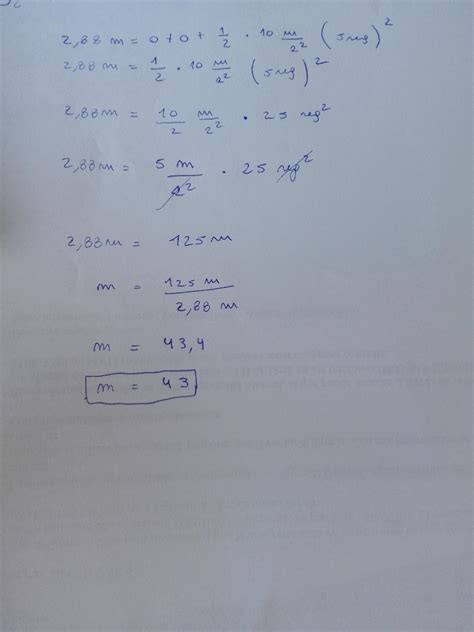 2,88 m = 0 + 0 + 1/2 · 10 m/s² (5 seg)²
2,88 m = 1/2 · 10 m/s² (5 seg)²
2,88 m = 10/2 m/s² · 25 seg²
2,88 m = 5 m/s² · 25 seg²
2,88 m = 125 m
m = 125 m / 2,88 m
m = 43,4
m = 43